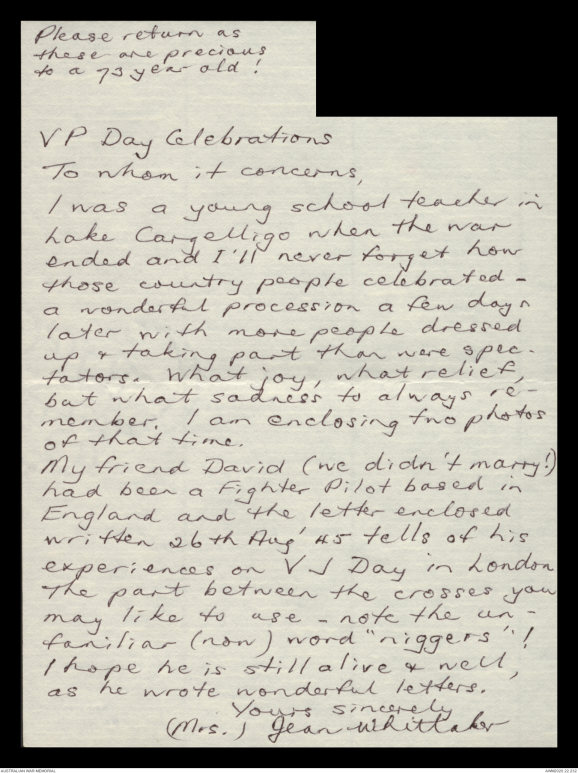 Please return as
these are precious
to a 73 year old!
VP Day Celebrations
To whom it concerns,
I was a young school teacher in
Lake Cargelligo when the war
ended and I'll never forget how
those country people celebrated -
a wonderful procession a few days
later with more people dressed
up & taking part than were spec-
tators. What joy, what relief,
but what sadness to always re-
member. I am enclosing two photos
of that time.
My friend David (we didn't marry!)
had been a Fighter Pilot based in
England and the letter enclosed
written 26th Aug' 45 tells of his
experiences on VJ Day in London
The part between the crosses you
may like to use - note the un-
familiar (now) word "niggers"!
I hope he is still alive & well,
as he wrote wonderful letters.
Yours sincerely
(Mrs.) Jean Whittaker
AUSTRALIAN WAR MEMORIAL